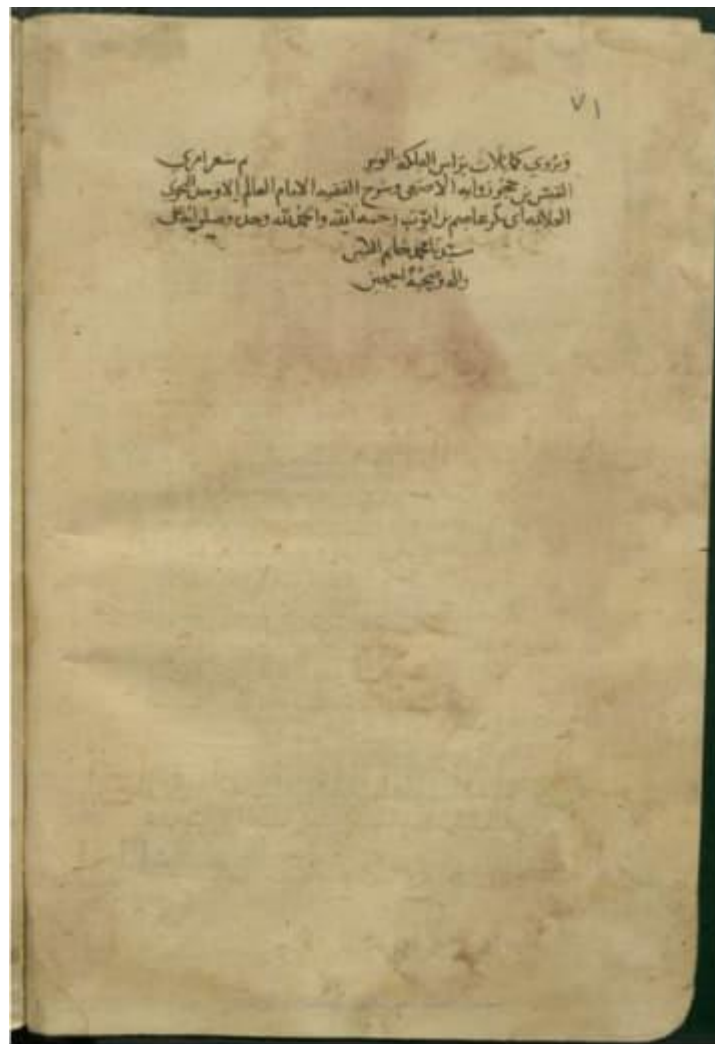 ٧١
ويروي كما لاث برأس الفلكة الوبر تم شعر امرئ
القيس بن حجر رواية الاصمعي وشرح الفقيه الامام العالم الاوحد النحوي
ابى بكر عاصم بن ايوب رحمه الله والحمد لله وحده وصلواته على
سيدنا محمد خاتم النبيين
واله وصحبه اجمعين